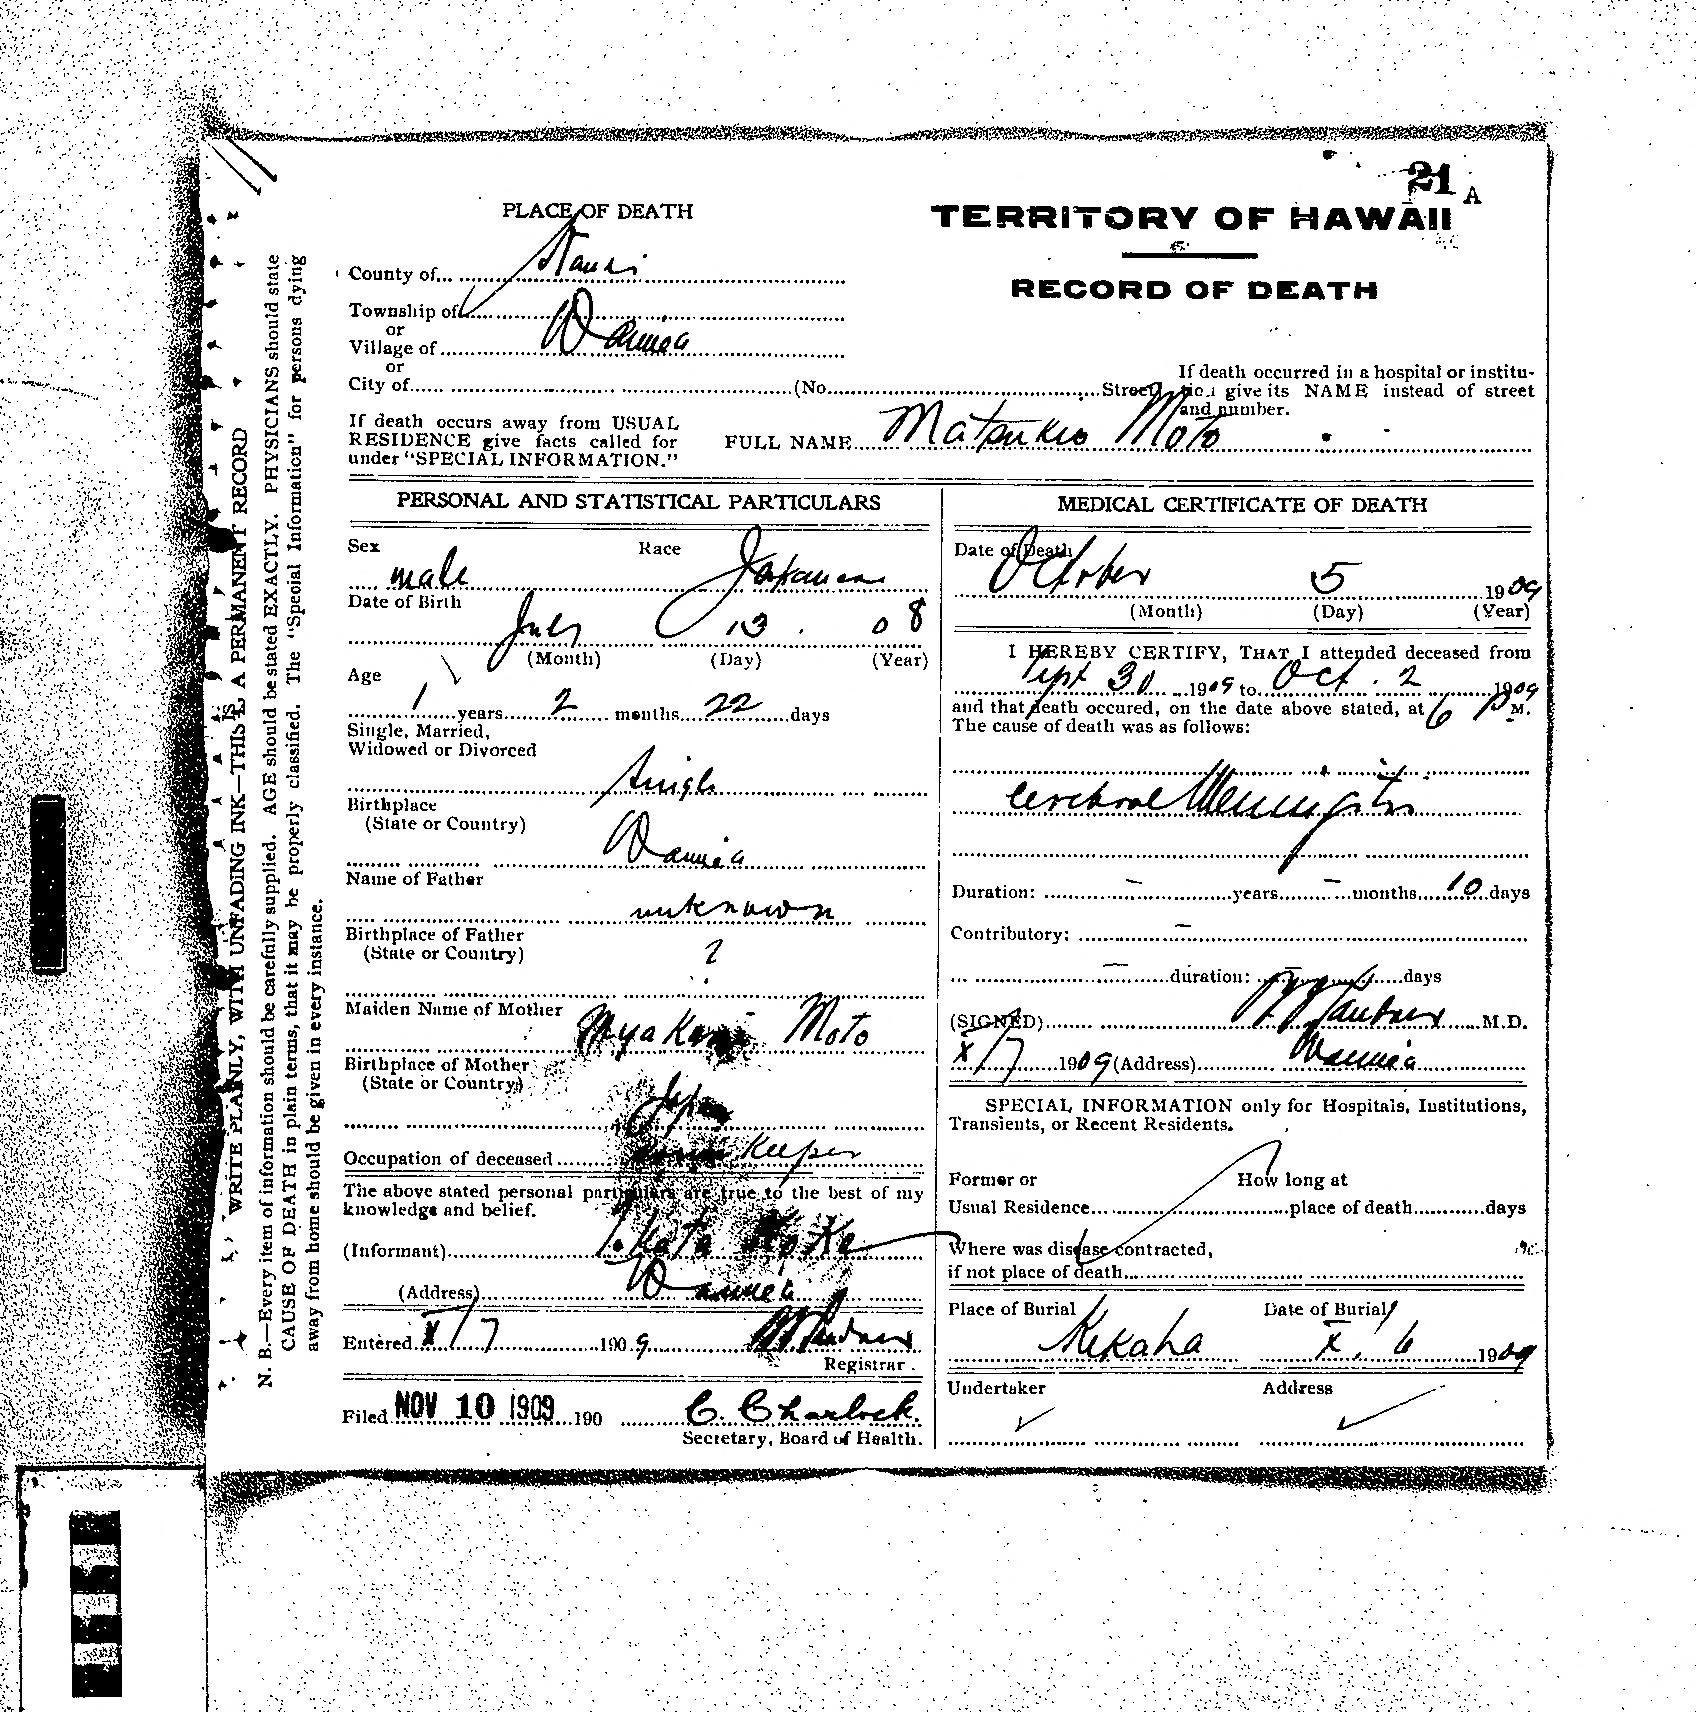 21 A
PLACE OF DEATH
TERRITORY OF HAWAII
RECORD OF DEATH
County of Kauai
Township of
or
Village of Waimea
or
City of (No. Street)
If death occurred in a hospital or institution give its NAME instead of street
and number.
If death occurs away from USUAL
RESIDENCE give facts called for
under "SPECIAL INFORMATION."
FULL NAME Matsukio Moto
WRITE PLAINLY, WITH UNFADING INK—THIS IS A PERMANENT RECORD
N. B.—Every item of information should be carefully supplied. AGE should be stated EXACTLY. PHYSICIANS should state
CAUSE OF DEATH in plain terms, that it may be properly classified. The "Special Information" for persons dying
away from home should be given in every instance.
PERSONAL AND STATISTICAL PARTICULARS
Sex Race
male Japanese
Date of Birth
July 13 . 08
(Month) (Day) (Year)
Age
1 years 2 months 22 days
Single, Married,
Widowed or Divorced
Single
Birthplace
(State or Country)
Waimea
Name of Father
unknown
Birthplace of Father
(State or Country) ?
Maiden Name of Mother
Moto
Birthplace of Mother
(State or Country)
Japan
Occupation of deceased Keeper
The above stated personal particulars are true to the best of my
knowledge and belief.
(Informant)
(Address) Waimea
Entered X/7 1909
Registrar.
Filed NOV 10 1909 190 C. Charlock.
Secretary, Board of Health.
MEDICAL CERTIFICATE OF DEATH
Date of Death
October 5 1909
(Month) (Day) (Year)
I HEREBY CERTIFY, THAT I attended deceased from
Sept 30 1909 to Oct. 2 1909
and that death occured, on the date above stated, at 6 P M.
The cause of death was as follows:
Cerebral Meningitis
Duration: - years - months 10 days
Contributory: -
- duration: - days
(SIGNED) M.D.
X/7 1909 (Address) Waimea
SPECIAL INFORMATION only for Hospitals, Institutions,
Transients, or Recent Residents.
Former or How long at
Usual Residence place of death days
Where was disease contracted,
if not place of death
Place of Burial Date of Burial
Kekaha X. 6 1909
Undertaker Address